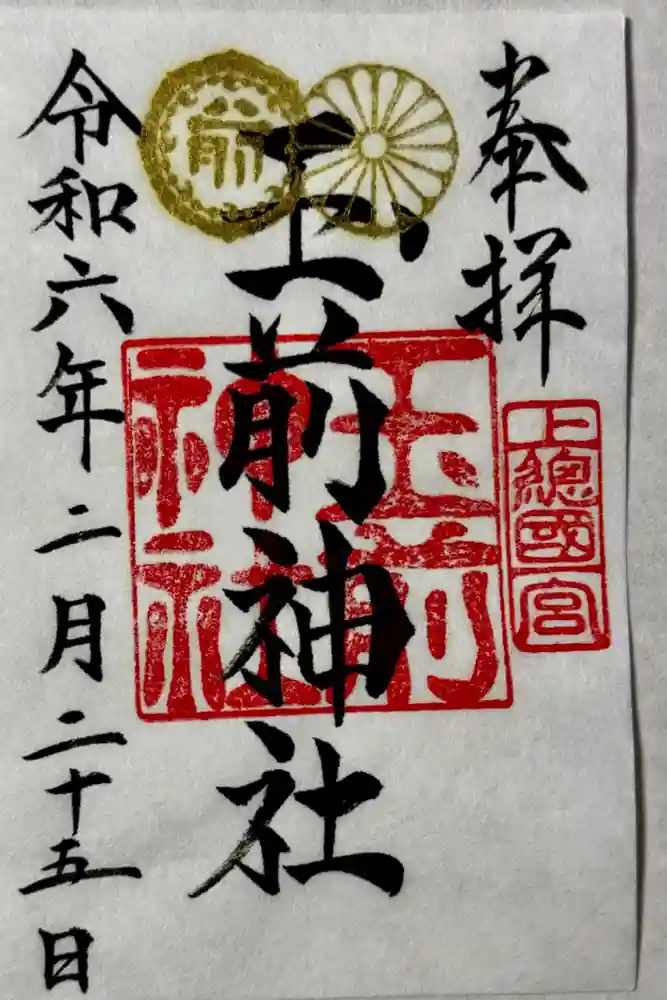 奉拝
上總國一宮
玉前神社
玉前神社
前
令和六年二月二十五日